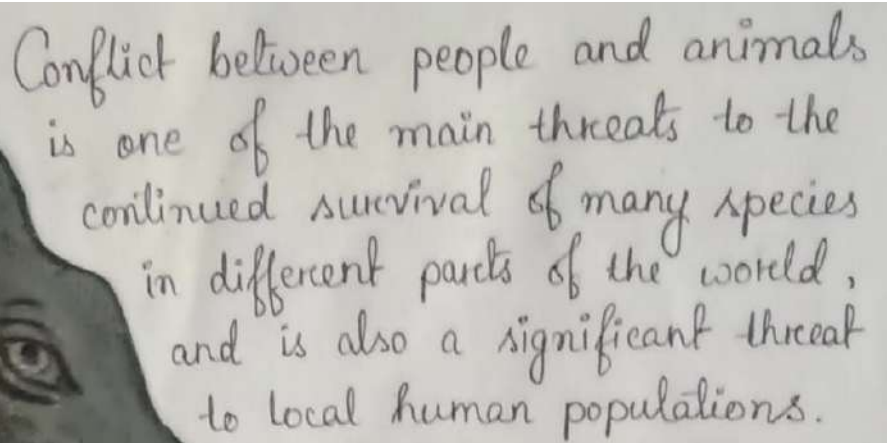 Conflict between people and animals
is one of the main threats to the
continued survival of many species
in different parts of the world,
and is also a significant threat
to local human populations.